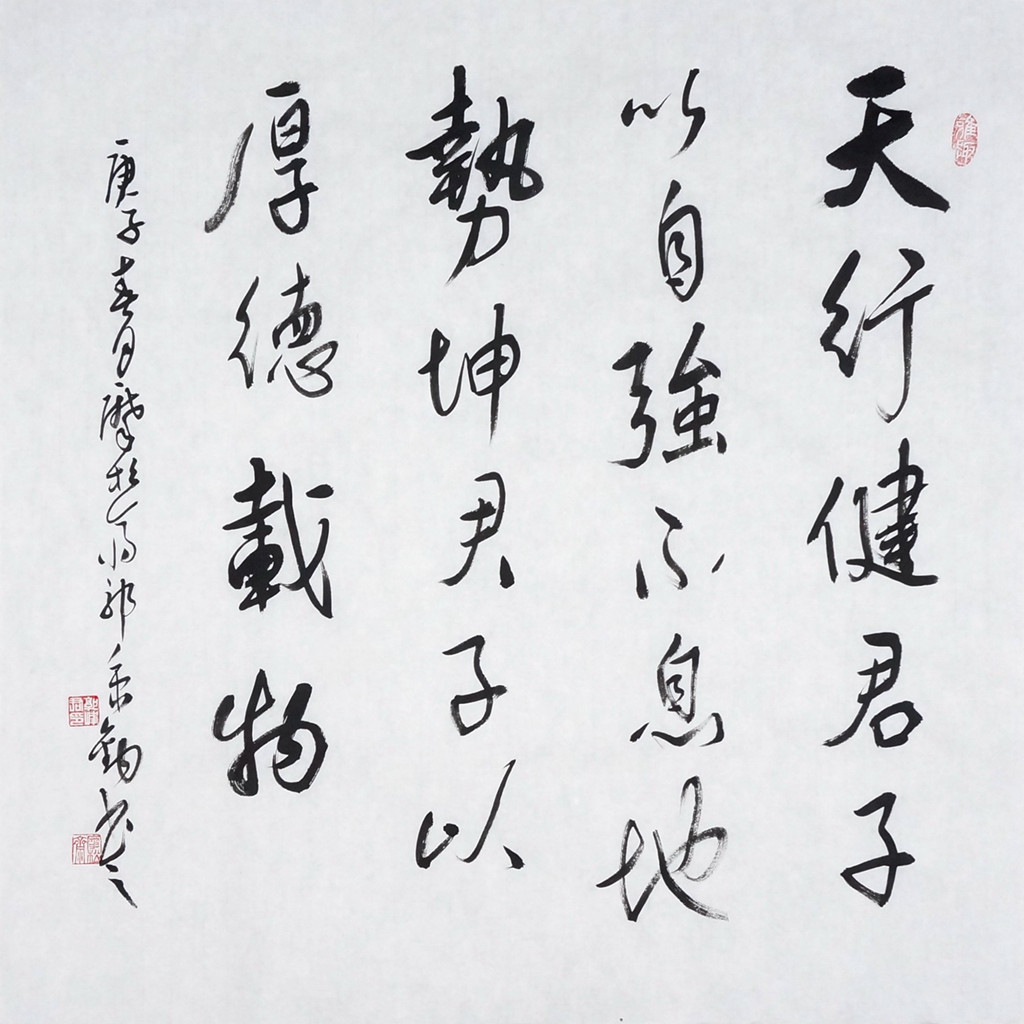 天行健君子
以自強不息地
勢坤君子以
厚德載物
庚子春月